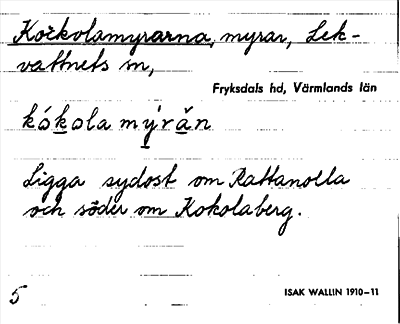 Kočkolamyrarna, myrar, Lek-
vattnets sn,
Fryksdals hd, Värmlands län
kó̱kola mý̱rǎ̱n
Ligga sydost om Rattanolla
och söder om Kokolaberg.
5
ISAK WALLIN 1910–11